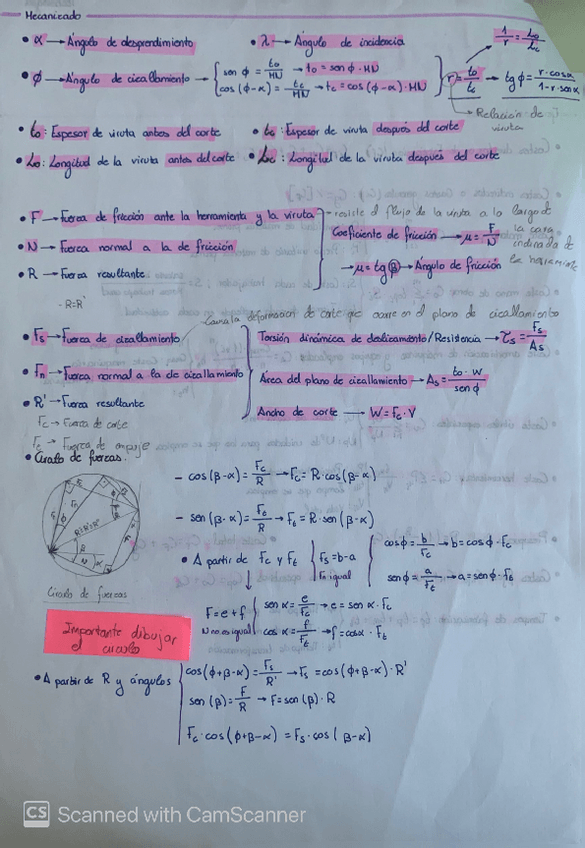 Mecanizado
• α → Ángulo de desprendimiento • λ → Ángulo de incidencia
1/r = Lo/Lc
• ϕ → Ángulo de cicallamiento → { sen ϕ = to/MN → to = sen ϕ · MN
cos (ϕ-α) = tc/MN → tc = cos (ϕ-α) · MN } r = to/tc → tg ϕ = r·cosα / 1-r·senα
Relación de viruta
• to: Espesor de viruta antes del corte • tc: Espesor de viruta después del corte
• Lo: Longitud de la viruta antes del corte • Lc: Longitud de la viruta después del corte
• F → Fuerza de fricción ante la herramienta y la viruta - resiste el flujo de la viruta a lo largo de la cara inclinada de la herramienta
Coeficiente de fricción → μ = F/N
• N → Fuerza normal a la de fricción
→ μ = tg β → Ángulo de fricción
• R → Fuerza resultante
- R=R'
Causa la deformación de corte que ocurre en el plano de cicallamiento
• Fs → Fuerza de cicallamiento
Torsión dinámica de deslizamiento/Resistencia → τs = Fs/As
• Fn → Fuerza normal a la de cicallamiento
Área del plano de cicallamiento → As = to · w / sen ϕ
• R' → Fuerza resultante
Ancho de corte → W = Fc · V
Fc → Fuerza de corte
Ft → Fuerza de empuje
• Círculo de fuerzas.
- cos (β-α) = Fc/R → Fc = R · cos (β-α)
- sen (β-α) = Ft/R → Ft = R · sen (β-α)
• A partir de Fc y Ft { Fs = b-a
Fn igual
{ cos ϕ = b/Fc → b = cos ϕ · Fc
sen ϕ = a/Ft → a = sen ϕ · Ft
Círculo de fuerzas
F = e + f
N no es igual
{ sen α = e/Fc → e = sen α · Fc
cos α = f/Ft → f = cos α · Ft
Importante dibujar
el círculo
• A partir de R y ángulos
cos (ϕ+β-α) = Fs/R' → Fs = cos (ϕ+β-α) · R'
sen (β) = F/R → F = sen (β) · R
Fc · cos (ϕ+β-α) = Fs · cos (β-α)
CS Scanned with CamScanner